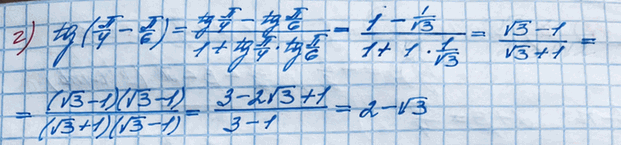 г) tg(π/4 − π/6) = (tg π/4 − tg π/6)/(1 + tg π/4 · tg π/6) = (1 − 1/√3)/(1 + 1 · 1/√3) = (√3 − 1)/(√3 + 1) =
= ((√3 − 1)(√3 − 1))/((√3 + 1)(√3 − 1)) = (3 − 2√3 + 1)/(3 − 1) = 2 − √3